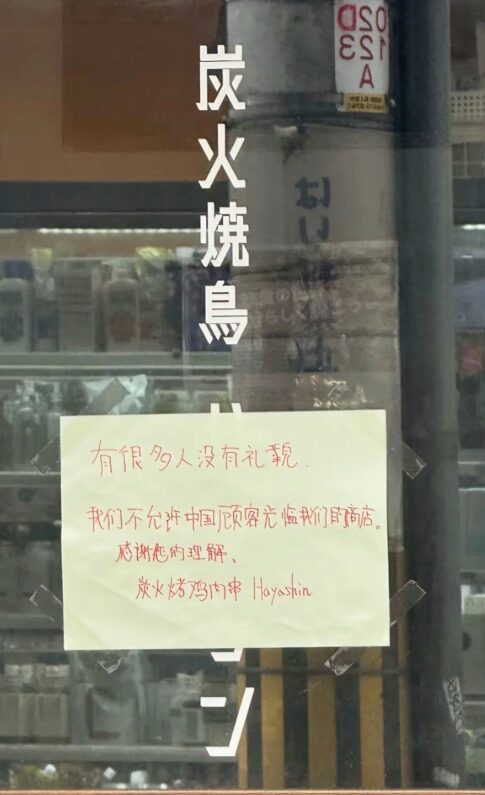 炭火焼鳥
ン
02D
123
A
有很多人没有礼貌.
我们不允许中国顾客光临我们的商店。
感谢您的理解.
炭火烤鸡肉串 Hayashin